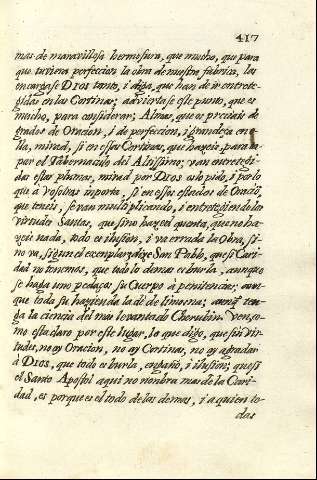 417
mas de maravillosa hermosura, que mucho, que para
que tuviera perfeccion la obra de nuestra fabrica, las
encargase DIOS tanto, i diga, que han de ir entrete-
gidas en las Cortinas; advierta se este punto, que es
mucho, para considerar; Almas, que os preciais de
grados de Oracion, i de perfeccion, i grandeza en e-
lla, mirad, si en essas Cortinas, que hazeis, para ta-
par el Tabernaculo del Altissimo; van entretegi-
das estas plumas, mirad por DIOS os lo pido, i por lo
que à vosotras inporta, si en essos estados de Oraciõ,
que teneis, se van multiplicando, i entretegiendo las
virtudes Santas, que sino hazeis quenta, que no ha-
zeis nada, todo es ilusion, i va errada la Obra, si-
no va, sigun el exemplar, dize San Pablo, que si Cari-
dad no tenemos, que todo lo demas es burla, aunque
se haga uno pedaços su Cuerpo à penitencias; aun-
que toda su hazienda la dè de limosna; aunq̃ ten-
ga la ciencia del mas levantado Cherubin. Ven, co-
mo esta claro por este lugar, lo que digo, que sin vir-
tudes, no ay Oracion, no ay Cortinas, no ay agradar
à DIOS, que todo es burla, engaño, i ilusion; que si
el Santo Apostol aqui no nonbra mas de la Cari-
dad, es porque es el todo de las demas, i a quien to-
das